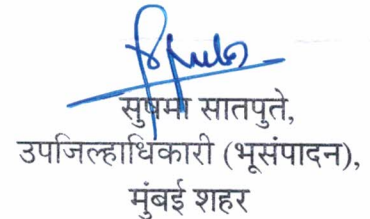 सुषमा सातपुते,
उपजिल्हाधिकारी (भूसंपादन),
मुंबई शहर